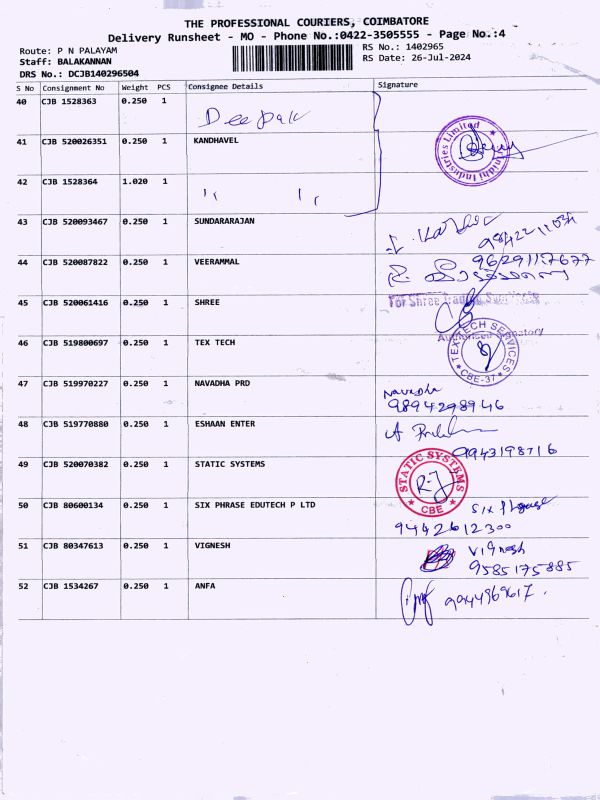 THE PROFESSIONAL COURIERS, COIMBATORE
Delivery Runsheet - MO - Phone No.:0422-3505555 - Page No.:4
Route: P N PALAYAM
RS No.: 1402965
Staff: BALAKANNAN
RS Date: 26-Jul-2024
DRS No.: DCJB140296504
S No Consignment No Weight PCS Consignee Details Signature
40 CJB 1528363 0.250 1 Deepak
41 CJB 520026351 0.250 1 KANDHAVEL
Industries Limited
42 CJB 1528364 1.020 1 " "
43 CJB 520093467 0.250 1 SUNDARARAJAN
44 CJB 520087822 0.250 1 VEERAMMAL
9629117677
45 CJB 520061416 0.250 1 SHREE
For Shree
Authorised Signatory
46 CJB 519800697 0.250 1 TEX TECH
TEXTECH SERVICES
CBE-37
47 CJB 519970227 0.250 1 NAVADHA PRD
Navadha
9894298946
48 CJB 519770880 0.250 1 ESHAAN ENTER
9943198716
49 CJB 520070382 0.250 1 STATIC SYSTEMS
STATIC SYSTEMS
CBE
50 CJB 80600134 0.250 1 SIX PHRASE EDUTECH P LTD
Six Phrase
9442612300
51 CJB 80347613 0.250 1 VIGNESH
Vignesh
9585175885
52 CJB 1534267 0.250 1 ANFA
9944969617.